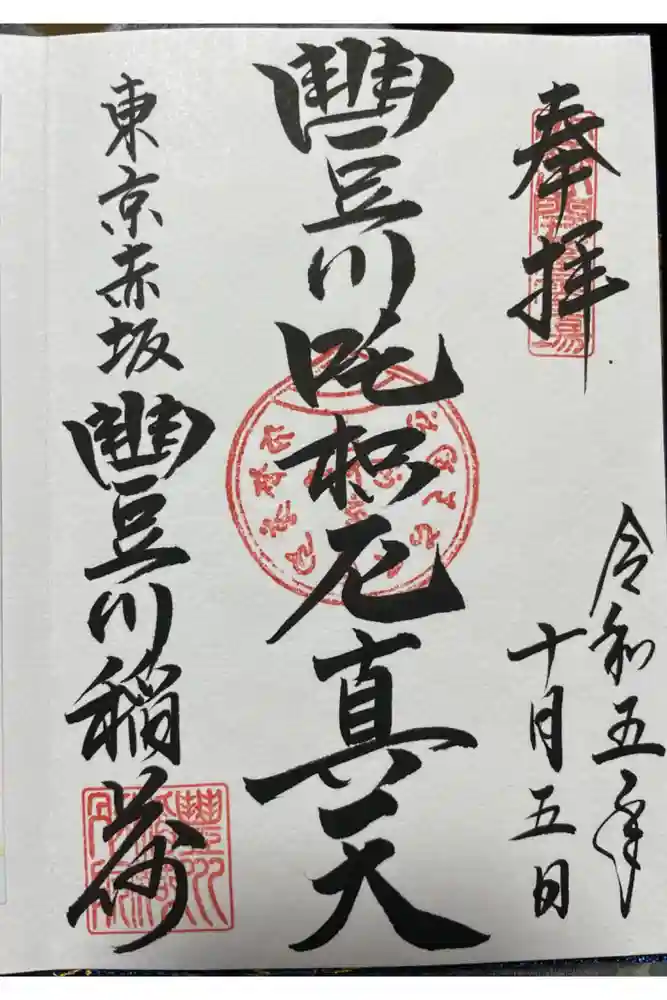 奉拝
令和五年
十月五日
豐川吒枳尼真天
東京赤坂
豐川稲荷